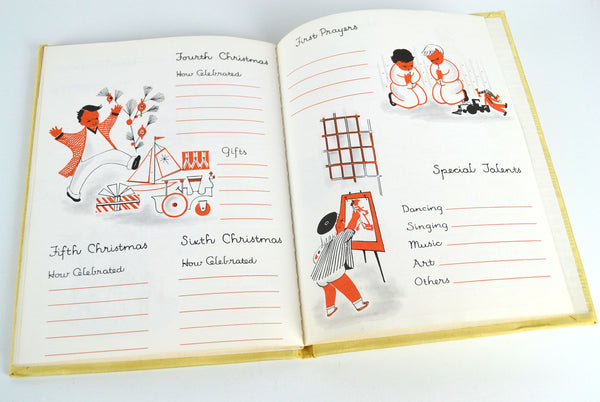 Fourth Christmas
How Celebrated
Gifts
Fifth Christmas
How Celebrated
Sixth Christmas
How Celebrated
First Prayers
Special Talents
Dancing
Singing
Music
Art
Others